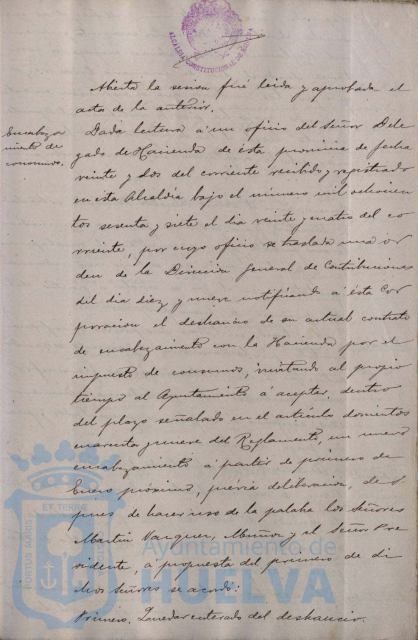 ALCALDIA CONSTITUCIONAL DE HUELVA
Abierta la sesion fué leida y aprobada el
acta de la anterior.
Encabeza
miento de
consumos.
Dada lectura á un oficio del Señor Dele
gado de Hacienda de ésta provincia de fecha
veinte y dos del corriente recibido y registrado
en esta Alcaldia bajo el número mil ochocien
tos sesenta y siete el dia veinte y cuatro del co
rriente, por cuyo oficio se traslada una ór
den de la Direccion general de Contribuciones
del dia diez y nueve notificando á ésta Cor
poracion el deshaucio de su actual contrato
de encabezamiento con la Hacienda por el
impuesto de consumos, invitando al propio
tiempo al Ayuntamiento á aceptar, dentro
del plazo señalado en el artículo doscientos
cuarenta y nueve del Reglamento, un nuevo
encabezamiento á partir de primero de
Enero próximo; prévia deliberacion, des
pues de hacer uso de la palabra los Señores
Martin Vazquez, Muñoz y el Señor Pre
sidente, á propuesta del primero de di
chos Señores se acordó:
Primero. Quedar enterado del deshaucio.
PORTUS MARIS ET TERRAE CUSTODIA
Ayuntamiento de
HUELVA